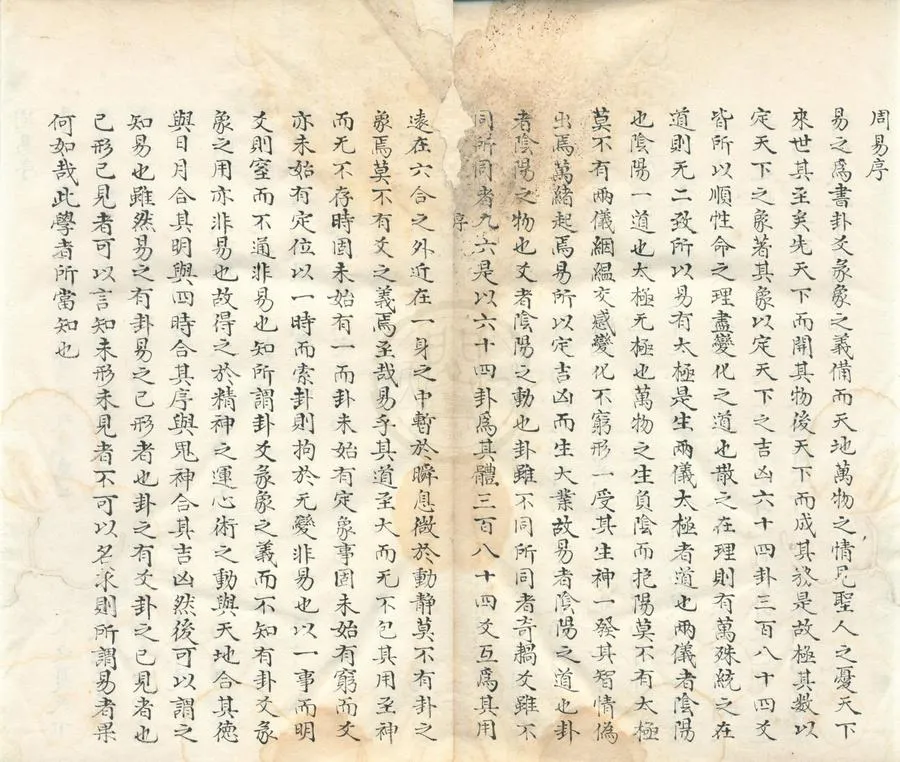 周易序
易之爲書卦爻彖象之義備而天地萬物之情見聖人之憂天下
來世其至矣先天下而開其物後天下而成其務是故極其數以
定天下之象著其象以定天下之吉凶六十四卦三百八十四爻
皆所以順性命之理盡變化之道也散之在理則有萬殊統之在
道則无二致所以易有太極是生兩儀太極者道也兩儀者陰陽
也陰陽一道也太極无極也萬物之生負陰而抱陽莫不有太極
莫不有兩儀絪縕交感變化不窮形一受其生神一發其智情僞
出焉萬緒起焉易所以定吉凶而生大業故易者陰陽之道也卦
者陰陽之物也爻者陰陽之動也卦雖不同所同者奇耦爻雖不
同所同者九六是以六十四卦爲其體三百八十四爻互爲其用
序
遠在六合之外近在一身之中暫於瞬息微於動靜莫不有卦之
象焉莫不有爻之義焉至哉易乎其道至大而无不包其用至神
而无不存時固未始有一而卦未始有定象事固未始有窮而爻
亦未始有定位以一時而索卦則拘於无變非易也以一事而明
爻則窒而不通非易也知所謂卦爻彖象之義而不知有卦爻彖
象之用亦非易也故得之於精神之運心術之動與天地合其德
與日月合其明與四時合其序與鬼神合其吉凶然後可以謂之
知易也雖然易之有卦易之已形者也卦之有爻卦之已見者也
已形已見者可以言知未形未見者不可以名求則所謂易者果
何如哉此學者所當知也